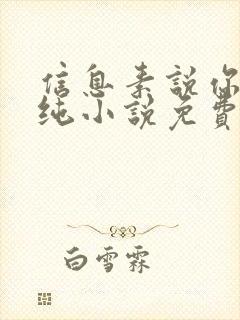 信息素说你
纯小说免費
白雪霖